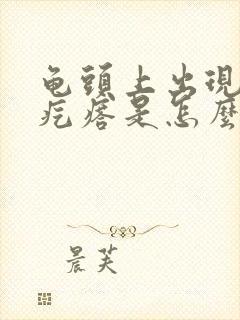 龟頭上出現
疙瘩是怎麼
晨芙